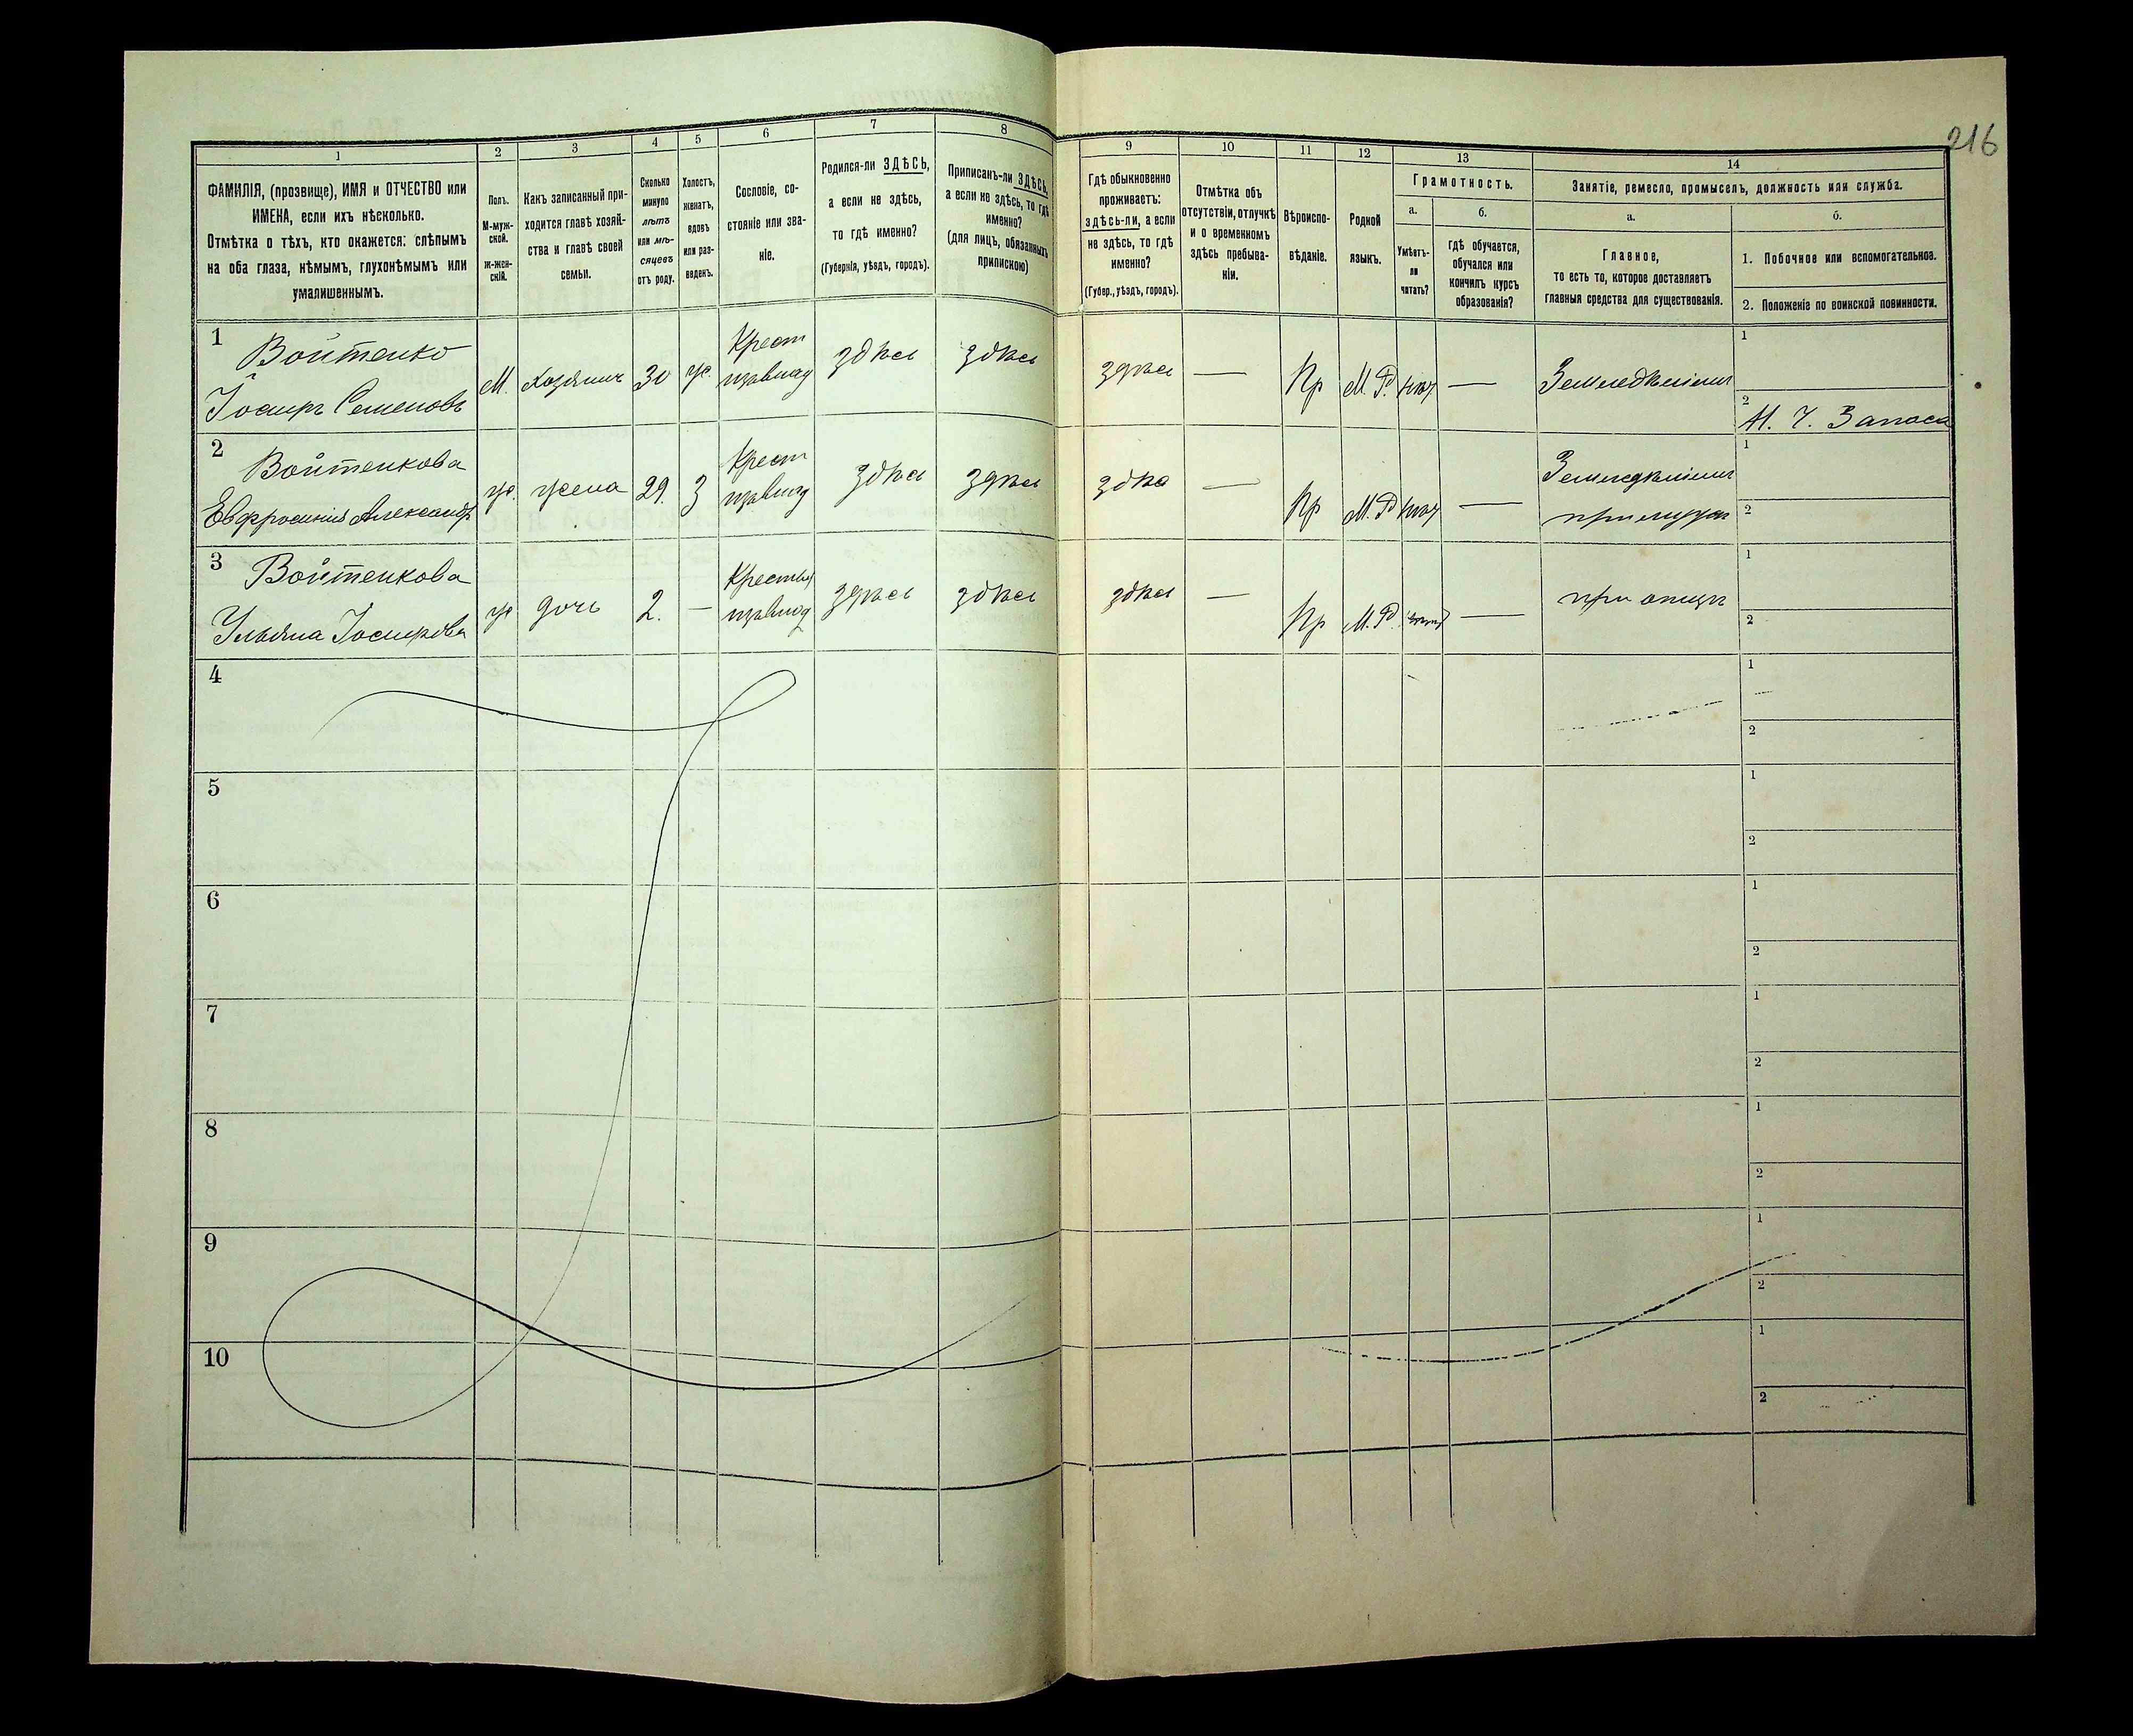 216
1
2
3
4
5
6
7
8
9
10
11
12
13
14
ФАМИЛІЯ, (прозвище), ИМЯ и ОТЧЕСТВО или
ИМЕНА, если ихъ нѣсколько.
Отмѣтка о тѣхъ, кто окажется: слѣпымъ
на оба глаза, нѣмымъ, глухонѣмымъ или
умалишеннымъ.
Полъ.
М-муж-
ской.
Ж-жен-
скій.
Какъ записанный при-
ходится главѣ хозяй-
ства и главѣ своей
семьи.
Сколько
минуло
лѣтъ
или мѣ-
сяцевъ
отъ роду.
Холостъ,
женатъ,
вдовъ
или раз-
веденъ.
Сословіе, со-
стояніе или зва-
ніе.
Родился-ли ЗДѢСЬ,
а если не здѣсь,
то гдѣ именно?
(Губернія, уѣздъ, городъ).
Приписанъ-ли ЗДѢСЬ,
а если не здѣсь, то гдѣ
именно?
(для лицъ, обязанныхъ
припискою)
Гдѣ обыкновенно
проживаетъ:
здѣсь-ли, а если
не здѣсь, то гдѣ
именно?
(Губер., уѣздъ, городъ).
Отмѣтка объ
отсутствіи, отлучкѣ
и о временномъ
здѣсь пребыва-
ніи.
Вѣроиспо-
вѣданіе.
Родной
языкъ.
Грамотность.
а.
Умѣетъ-
ли
читать?
б.
гдѣ обучается,
обучался или
кончилъ курсъ
образованія?
Занятіе, ремесло, промыселъ, должность или служба.
а.
Главное,
то есть то, которое доставляетъ
главныя средства для существованія.
б.
1. Побочное или вспомогательное.
2. Положеніе по воинской повинности.
1
Войтенко
Іосифъ Семеновъ
М. Хозяинъ 30 ж. Крест здѣсь здѣсь здѣсь — Пр М. Р. — Земледѣліемъ
1
2
Н. Ч. Запаса
2
Войтенкова
Евфросинія Александр
ж. жена 29. З Крест здѣсь здѣсь здѣсь — Пр М. Р — Земледѣліемъ
при мужѣ
1
2
3
Войтенкова
Ульяна Іосифова
ж дочь 2. — Крестья здѣсь здѣсь здѣсь — Пр М. Р. — при отцѣ
1
2
4
1
2
5
1
2
6
1
2
7
1
2
8
1
2
9
1
2
10
1
2